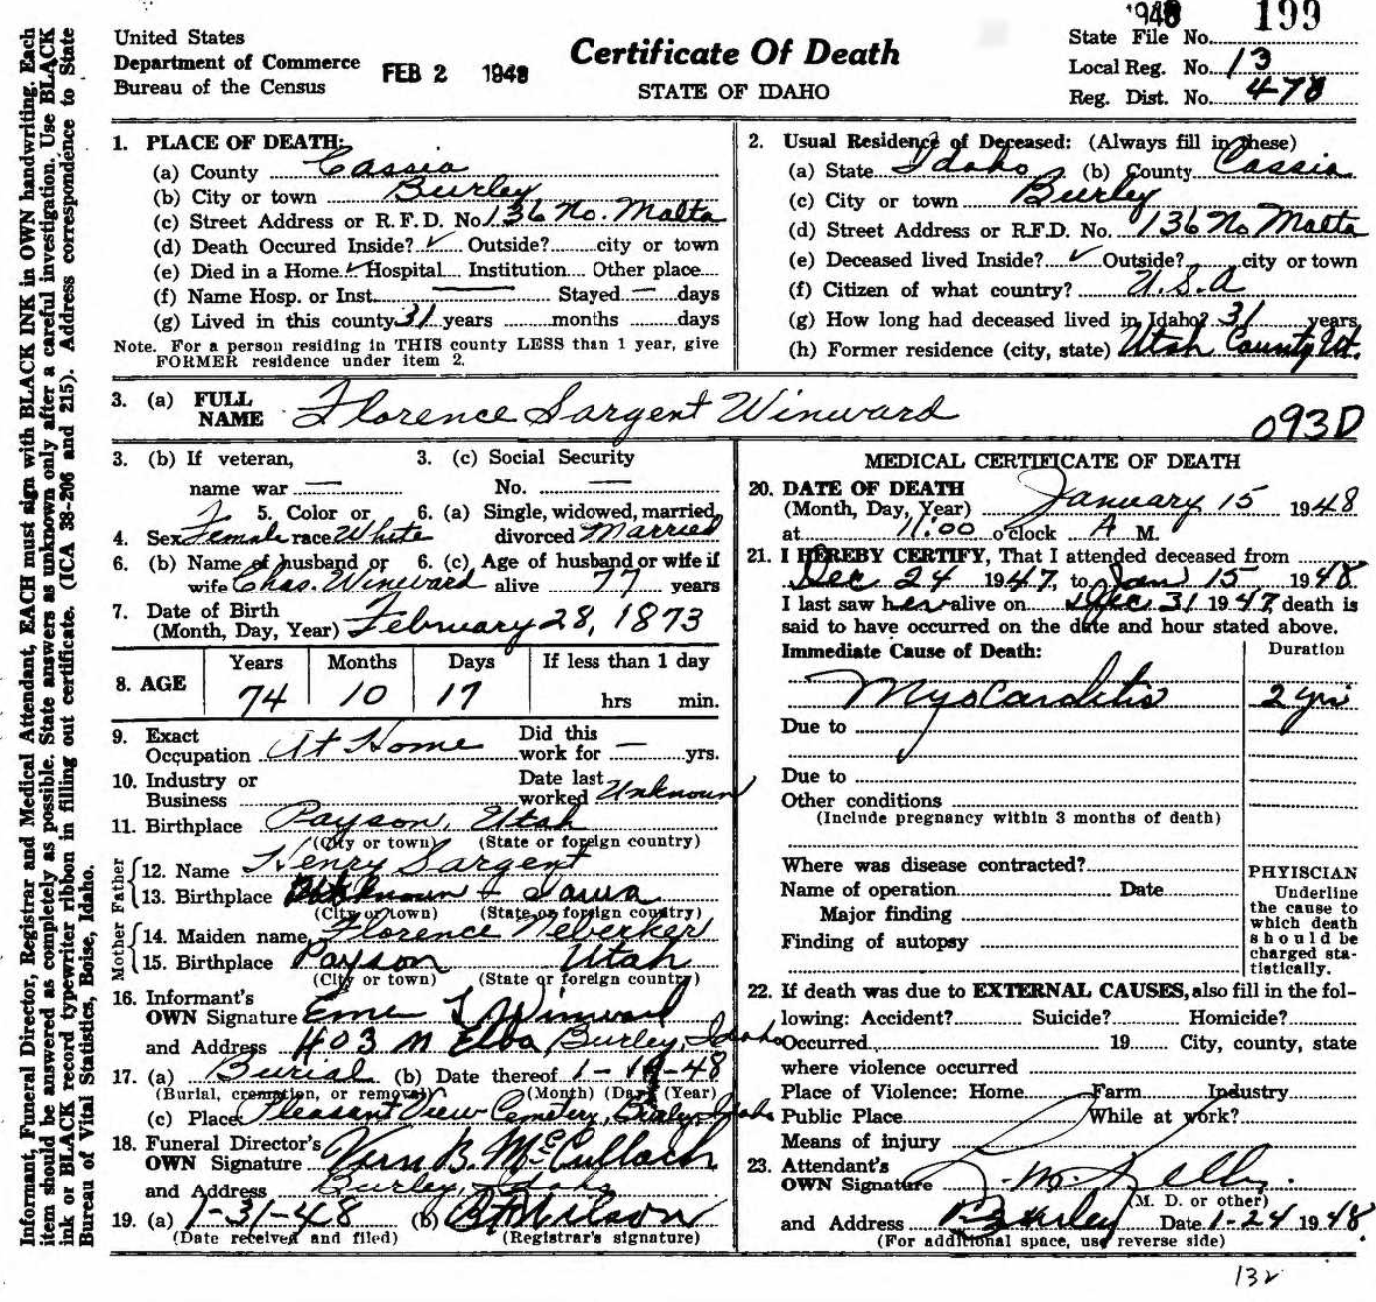 1948 199
United States
Department of Commerce
Bureau of the Census
FEB 2 1948
Certificate Of Death
STATE OF IDAHO
State File No.
Local Reg. No. 13
Reg. Dist. No. 470
Informant, Funeral Director, Registrar and Medical Attendant, EACH must sign with BLACK INK in OWN handwriting. Each
item should be answered as completely as possible. State answers as unknown only after a careful investigation. Use BLACK
ink or BLACK record typewriter ribbon in filling out certificate. (ICA 38-206 and 215). Address correspondence to State
Bureau of Vital Statistics, Boise, Idaho.
1. PLACE OF DEATH:
(a) County Cassia
(b) City or town Burley
(c) Street Address or R.F.D. No. 136 No. Malta
(d) Death Occured Inside? ✓ Outside? city or town
(e) Died in a Home ✓ Hospital Institution Other place
(f) Name Hosp. or Inst. — Stayed — days
(g) Lived in this county 31 years months days
Note. For a person residing in THIS county LESS than 1 year, give
FORMER residence under item 2.
2. Usual Residence of Deceased: (Always fill in these)
(a) State Idaho (b) County Cassia
(c) City or town Burley
(d) Street Address or R.F.D. No. 136 No Malta
(e) Deceased lived Inside? ✓ Outside? city or town
(f) Citizen of what country? U.S.A
(g) How long had deceased lived in Idaho? 31 years
(h) Former residence (city, state) Utah County Ut.
3. (a) FULL
NAME Florence Sargent Winward
093D
3. (b) If veteran,
name war —
3. (c) Social Security
No. —
4. Sex Female 5. Color or race White
6. (a) Single, widowed, married,
divorced Married
6. (b) Name of husband or
wife Chas. Winward
6. (c) Age of husband or wife if
alive 77 years
7. Date of Birth
(Month, Day, Year) February 28, 1873
8. AGE Years Months Days If less than 1 day
74 10 17 hrs min.
9. Exact
Occupation At Home
Did this
work for — yrs.
10. Industry or
Business
Date last
worked Unknown
11. Birthplace Payson, Utah
(City or town) (State or foreign country)
Father
12. Name Henry Sargent
13. Birthplace Unknown Iowa
(City or town) (State or foreign country)
Mother
14. Maiden name Florence Neberker
15. Birthplace Payson Utah
(City or town) (State or foreign country)
16. Informant's
OWN Signature Winward
and Address 403 N Elba, Burley, Idaho
17. (a) Burial (b) Date thereof 1-19-48
(Burial, cremation, or removal) (Month) (Day) (Year)
(c) Place Pleasant View Cemetery, Burley, Idaho
18. Funeral Director's
OWN Signature Vern B. McCulloch
and Address Burley, Idaho
19. (a) 1-31-48 (b) Wilson
(Date received and filed) (Registrar's signature)
MEDICAL CERTIFICATE OF DEATH
20. DATE OF DEATH
(Month, Day, Year) January 15 1948
at 11:00 o'clock A M.
21. I HEREBY CERTIFY, That I attended deceased from
Dec 24 1947, to Jan 15 1948
I last saw her alive on Dec 31 1947, death is
said to have occurred on the date and hour stated above.
Immediate Cause of Death: Duration
Myocarditis 2 yrs
Due to
Due to
Other conditions
(Include pregnancy within 3 months of death)
Where was disease contracted?
Name of operation Date
Major finding
Finding of autopsy
PHYISCIAN
Underline
the cause to
which death
should be
charged sta-
tistically.
22. If death was due to EXTERNAL CAUSES, also fill in the fol-
lowing: Accident? Suicide? Homicide?
Occurred 19 City, county, state
where violence occurred
Place of Violence: Home Farm Industry
Public Place While at work?
Means of injury
23. Attendant's
OWN Signature Kelly
(M. D. or other)
and Address Burley Date 1-24 1948
(For additional space, use reverse side)
132